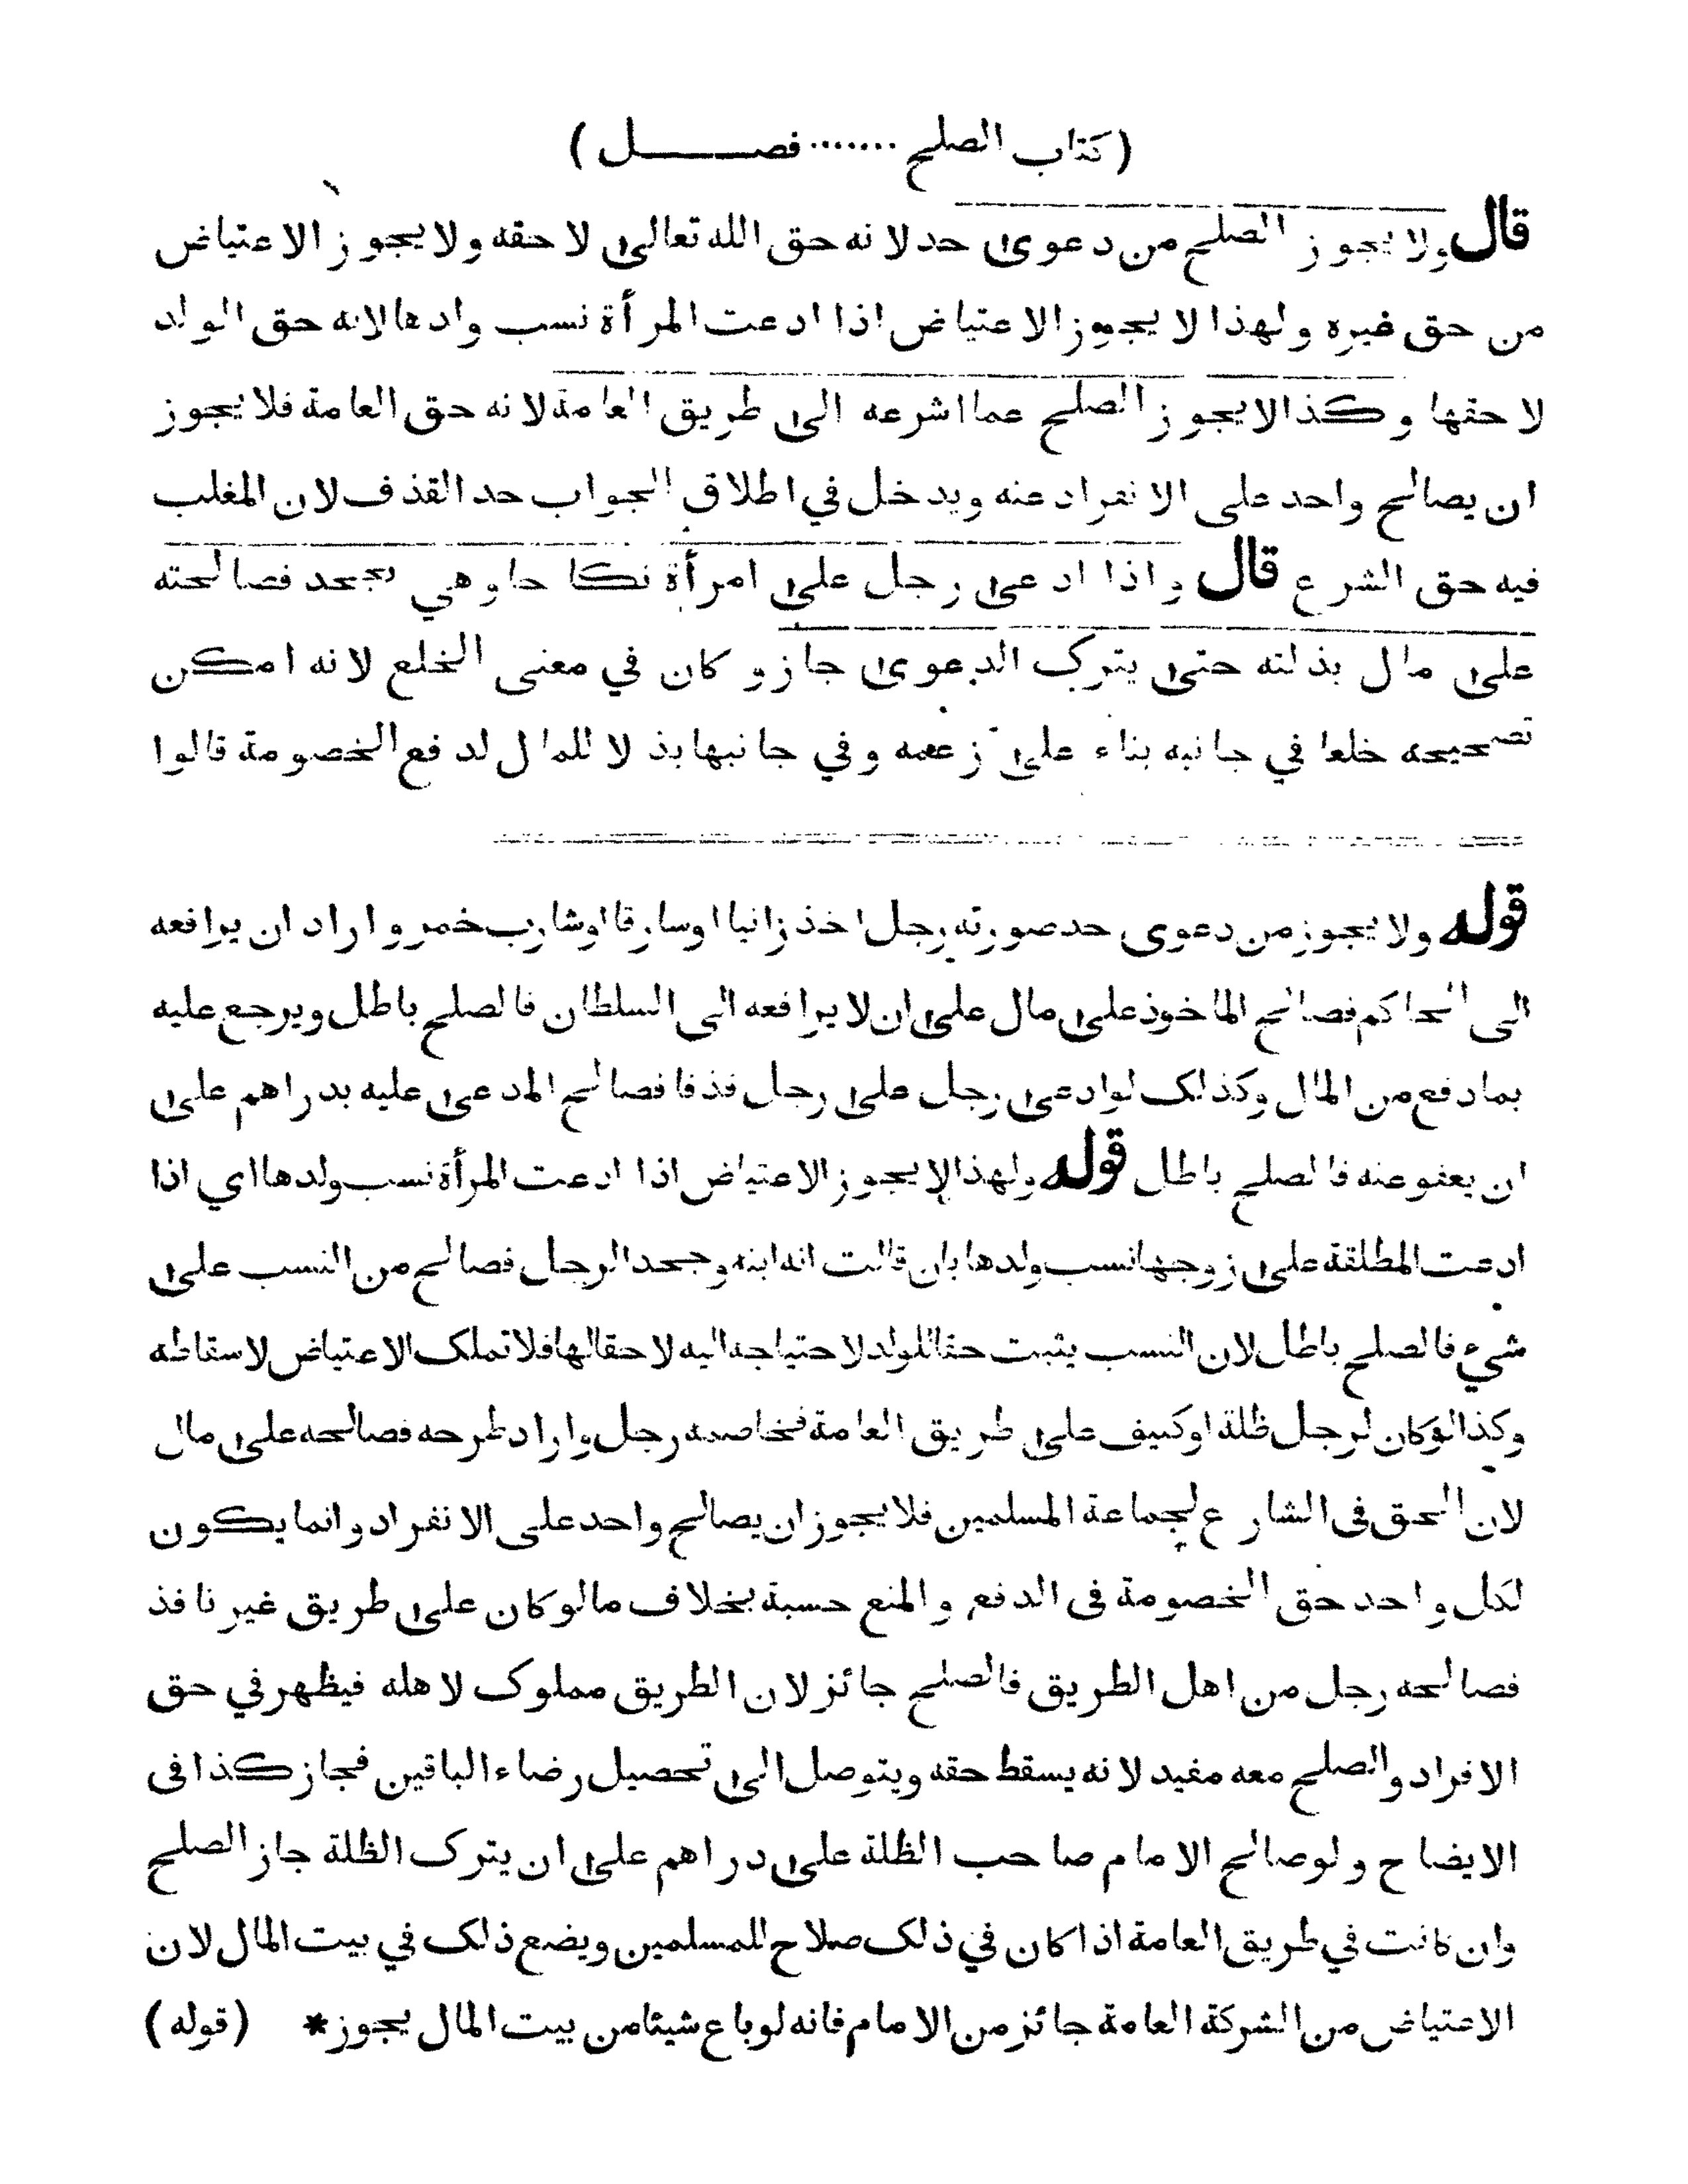 ( كتاب الصلح ....... فصل )
قال ولا يجوز الصلح من دعوى حد لانه حق الله تعالى لا حقه ولا يجوز الاعتياض
من حق غيره ولهذا لا يجوز الاعتياض اذا ادعت المرأة نسب ولدها لانه حق الولد
لا حقها وكذا لا يجوز الصلح عما اشرعه الى طريق العامة لانه حق العامة فلا يجوز
ان يصالح واحد على الانفراد عنه ويدخل في اطلاق الجواب حد القذف لان المغلب
فيه حق الشرع قال واذا ادعى رجل على امرأة نكاحا وهي تجحد فصالحته
على مال بذلته حتى يترك الدعوى جاز وكان في معنى الخلع لانه امكن
تصحيحه خلعا في جانبه بناء على زعمه وفي جانبها بذلا للمال لدفع الخصومة قالوا
قوله ولا يجوز من دعوى حد صورته رجل اخذ زانيا او سارقا او شارب خمر واراد ان يرافعه
الى الحاكم فصالح الماخوذ على مال على ان لا يرافعه الى السلطان فالصلح باطل ويرجع عليه
بما دفع من المال وكذلك لو ادعى رجل على رجل قذفا فصالح المدعى عليه بدراهم على
ان يعفو عنه فالصلح باطل قوله ولهذا لا يجوز الاعتياض اذا ادعت المرأة نسب ولدها اي اذا
ادعت المطلقة على زوجها نسب ولدها بان قالت انه ابنه وجحد الرجل فصالح من النسب على
شيء فالصلح باطل لان النسب يثبت حقا للولد لاحتياجه اليه لا حقا لها فلا تملك الاعتياض لاسقاطه
وكذا لو كان لرجل ظلة او كنيف على طريق العامة فخاصمه رجل واراد طرحه فصالحه على مال
لان الحق فى الشارع لجماعة المسلمين فلا يجوز ان يصالح واحد على الانفراد وانما يكون
لكل واحد حق الخصومة فى الدفع والمنع حسبة بخلاف ما لو كان على طريق غير نافذ
فصالحه رجل من اهل الطريق فالصلح جائز لان الطريق مملوك لاهله فيظهر في حق
الافراد والصلح معه مفيد لانه يسقط حقه ويتوصل الى تحصيل رضاء الباقين فجاز كذا فى
الايضاح ولو صالح الامام صاحب الظلة على دراهم على ان يترك الظلة جاز الصلح
وان كانت في طريق العامة اذا كان في ذلك صلاح للمسلمين ويضع ذلك في بيت المال لان
الاعتياض من الشركة العامة جائز من الامام فانه لو باع شيئا من بيت المال يجوز * ( قوله )